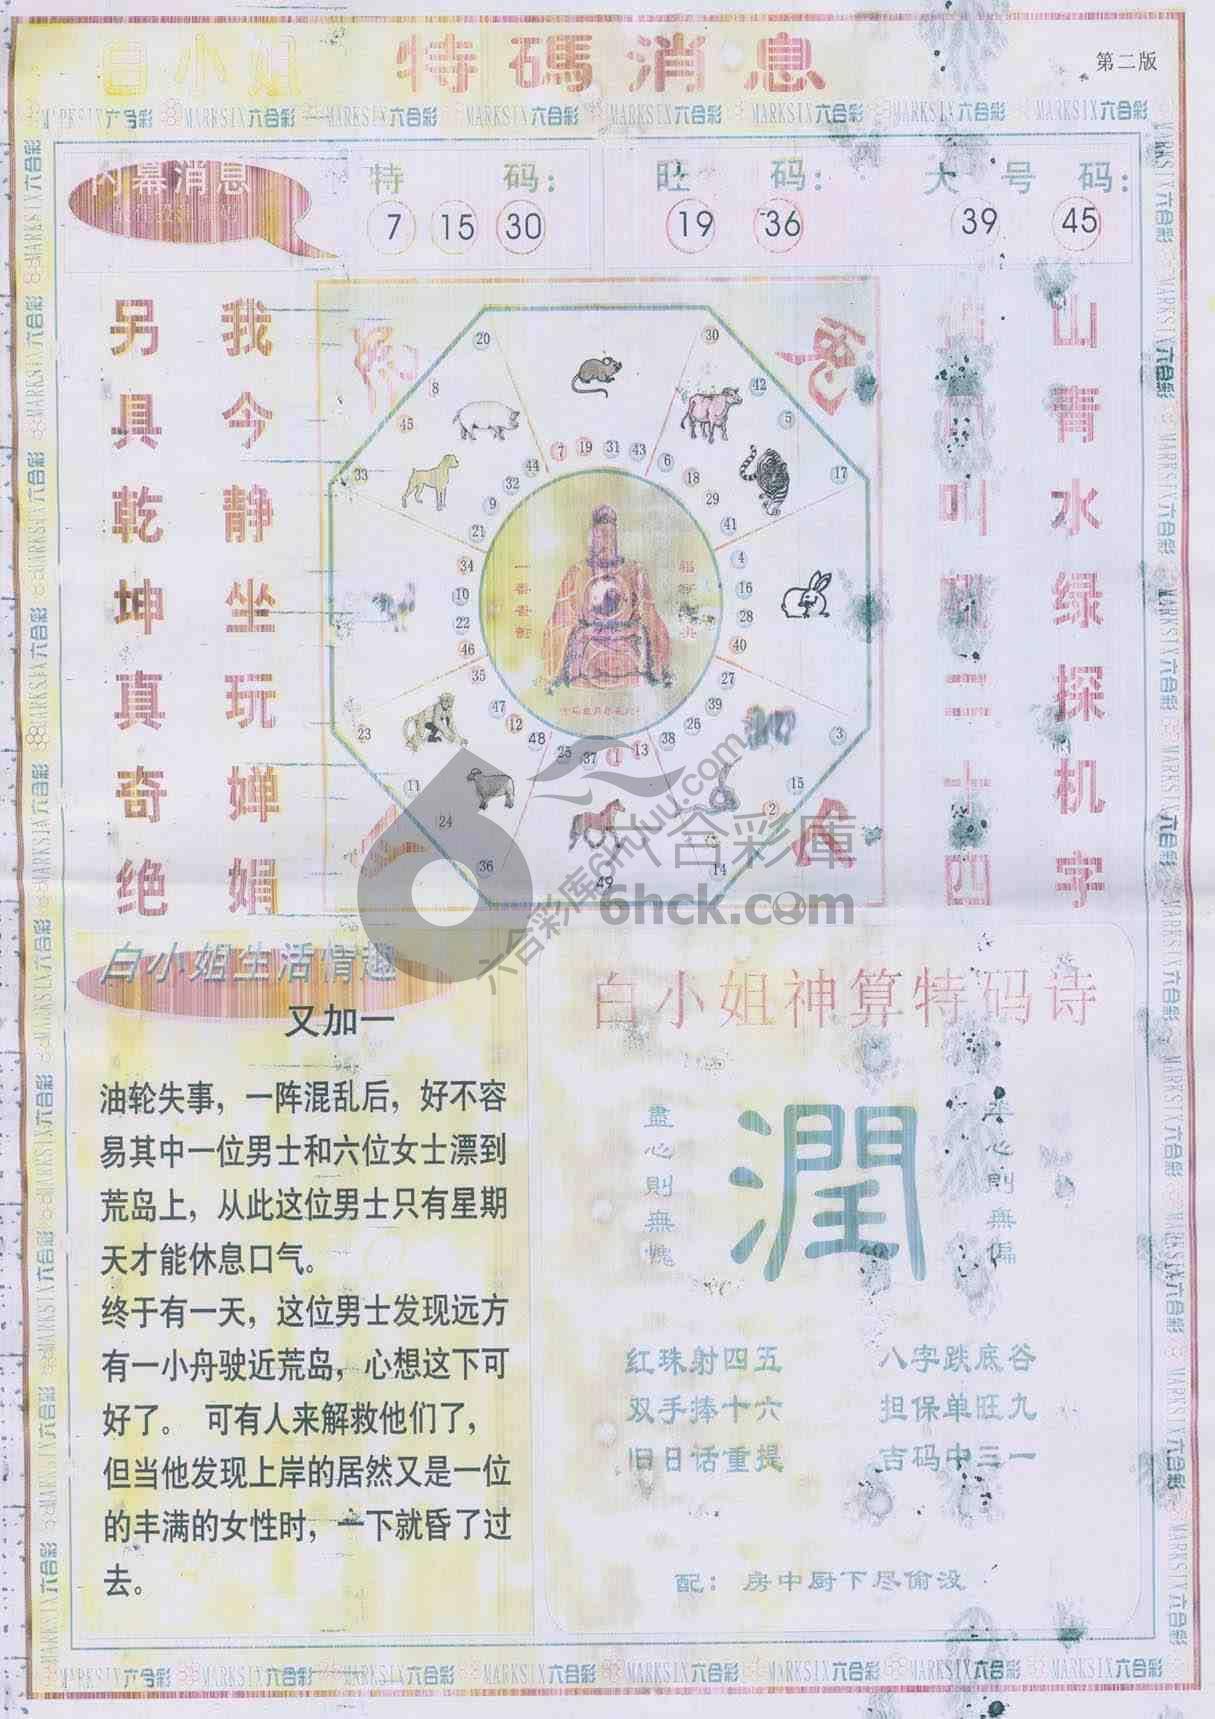 白小姐 特碼消息
第二版
MARKSIX六合彩 MARKSIX六合彩 MARKSIX六合彩 MARKSIX六合彩 MARKSIX六合彩 MARKSIX六合彩 MARKSIX六合彩 MARKSIX六合彩
内幕消息
特 码：
7 15 30
旺 码：
19 36
大 号 码：
39 45
山青水绿探机字
叫
二十四
我今静坐玩婵娟
另具乾坤真奇绝
20
30
8
42
45
5
33
17
7 19 31 43
44
6
32
18
9
29
21
41
34
4
10
16
22
28
46
40
35
27
47
39
12
26
48
38
25 37 1 13
23
3
11
15
24
2
36
14
49
六合彩库6htuu.com
六合彩庫
6hck.com
白小姐生活情趣
又加一
油轮失事，一阵混乱后，好不容
易其中一位男士和六位女士漂到
荒岛上，从此这位男士只有星期
天才能休息口气。
终于有一天，这位男士发现远方
有一小舟驶近荒岛，心想这下可
好了。 可有人来解救他们了，
但当他发现上岸的居然又是一位
的丰满的女性时，一下就昏了过
去。
白小姐神算特码诗
潤
盡心則無愧
心則無偏
红珠射四五 八字跌底谷
双手捧十六 担保单旺九
旧日话重提 吉码中三一
配：房中厨下尽偷没
MARKSIX六合彩 MARKSIX六合彩 MARKSIX六合彩 MARKSIX六合彩 MARKSIX六合彩 MARKSIX六合彩 MARKSIX六合彩 MARKSIX六合彩